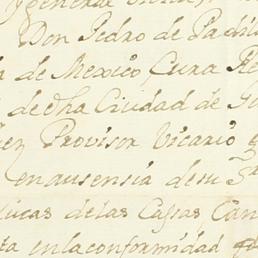 y general
Don Pedro de Padil
de Mexico Cura Re
de dha Ciudad de
Provisor Vicario
en ausensia de su
ucas de las Casas Can
ta en la conformidad